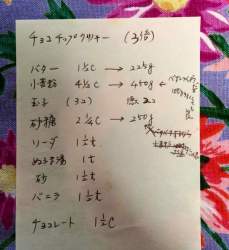 チョコチップクッキー (3倍)
バター 1½C → 225g
小麦粉 4½C → 450g ←
玉子 (3コ)
砂糖 2¼C → 250g
ソーダ 1½t
ぬるま湯 1t
砂 1½t
バニラ 1½t
チョコレート 1½C